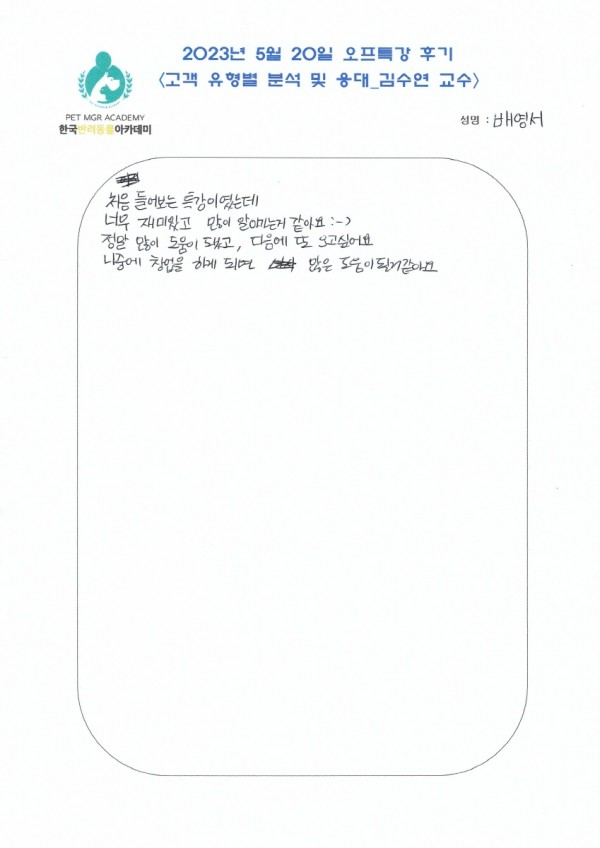 2023년 5월 20일 오프특강 후기
<고객 유형별 분석 및 응대_김수연 교수>
PET MGR ACADEMY
한국반려동물아카데미
성명 : 배영서
처음 들어보는 특강이였는데
너무 재미있고 많이 알아가는거 같아요 :->
정말 많이 도움이 되었고, 다음에 또 오고싶어요
나중에 창업을 하게 되면 많은 도움이 될거같아요